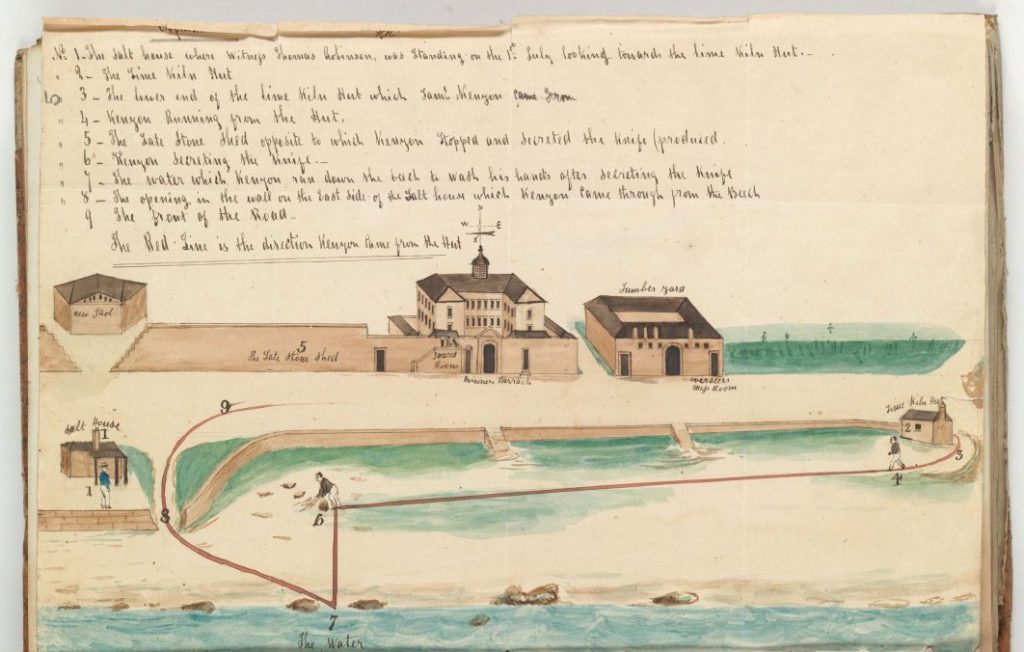 No 1 - The Salt house where Witness Thomas Robinson, was Standing on the 1st July looking towards the lime Kiln Hut.-
" 2 - The Lime Kiln Hut
" 3 - The lower end of the lime Kiln Hut which Saml Kenyon came from
" 4 - Kenyon Running from the Hut,
" 5 - The Late Stone Shed opposite to which Kenyon Stopped and Secreted the Knife (produced.
" 6 - Kenyon Secreting the Knife.-
" 7 - The water which Kenyon ran down the bech to wash his hands after Secreting the Knife
" 8 - The opening in the wall on the East side of the Salt house which Kenyon Came through from the Beech
9 The front of the Road-
The Red Line is the direction Kenyon Came from the Hut
5
N
W E
New Gaol
5
The Late Stone Shed
Guard Room
Prisoners Barrack
Lumber yard
overseers Mess Room
9
Salt House
1
1
8
6
Lime Kiln Hut
2
3
4
7
The Water